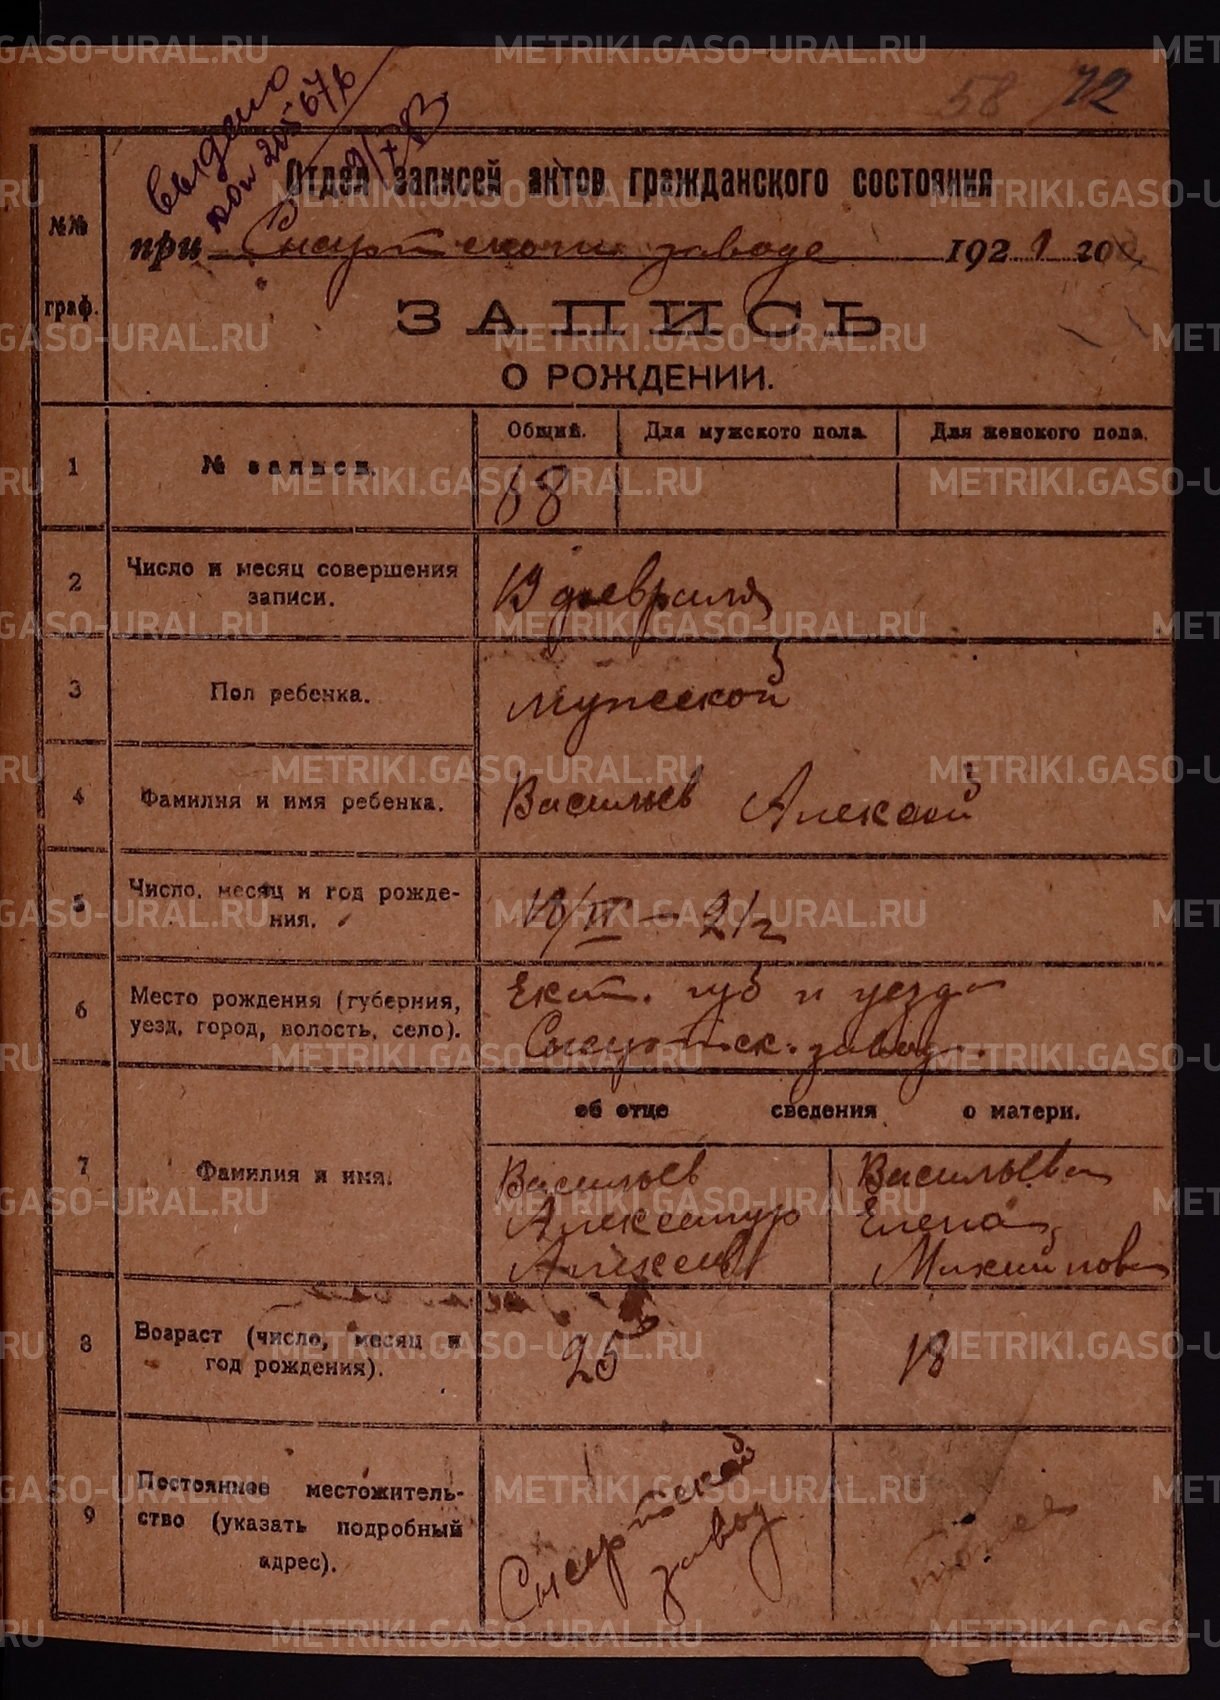 58 72
выдано
Отдел записей актов гражданского состояния
при Сысертском заводе 1921 год
№№ граф.
ЗАПИСЬ
О РОЖДЕНИИ.
Общий. Для мужского пола. Для женского пола.
1 № записи. 68
2 Число и месяц совершения записи. 19 февраля
3 Пол ребенка. мужской
4 Фамилия и имя ребенка. Васильев Алексей
5 Число, месяц и год рождения. /II – 21 г
6 Место рождения (губерния, уезд, город, волость, село). Екат. губ и уезда
Сысертск. завод
об отце сведения о матери.
7 Фамилия и имя. Васильев Васильева
Александр Елена
Алексеев Михайлова
8 Возраст (число, месяц и год рождения). 25 18
9 Постоянное местожительство (указать подробный адрес). Сысертской завод
METRIKI.GASO-URAL.RU